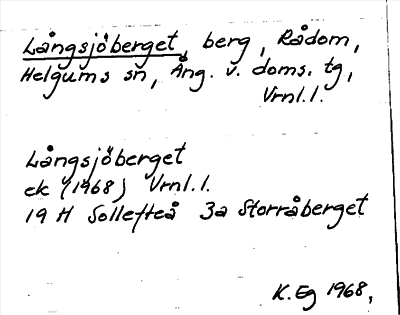 Långsjöberget, berg, Rådom,
Helgums sn, Ång. v. doms. tg,
Vrnl. l.
Långsjöberget
ek (1968) Vrnl. l.
19 H Sollefteå 3a Storråberget
K. Eg 1968,